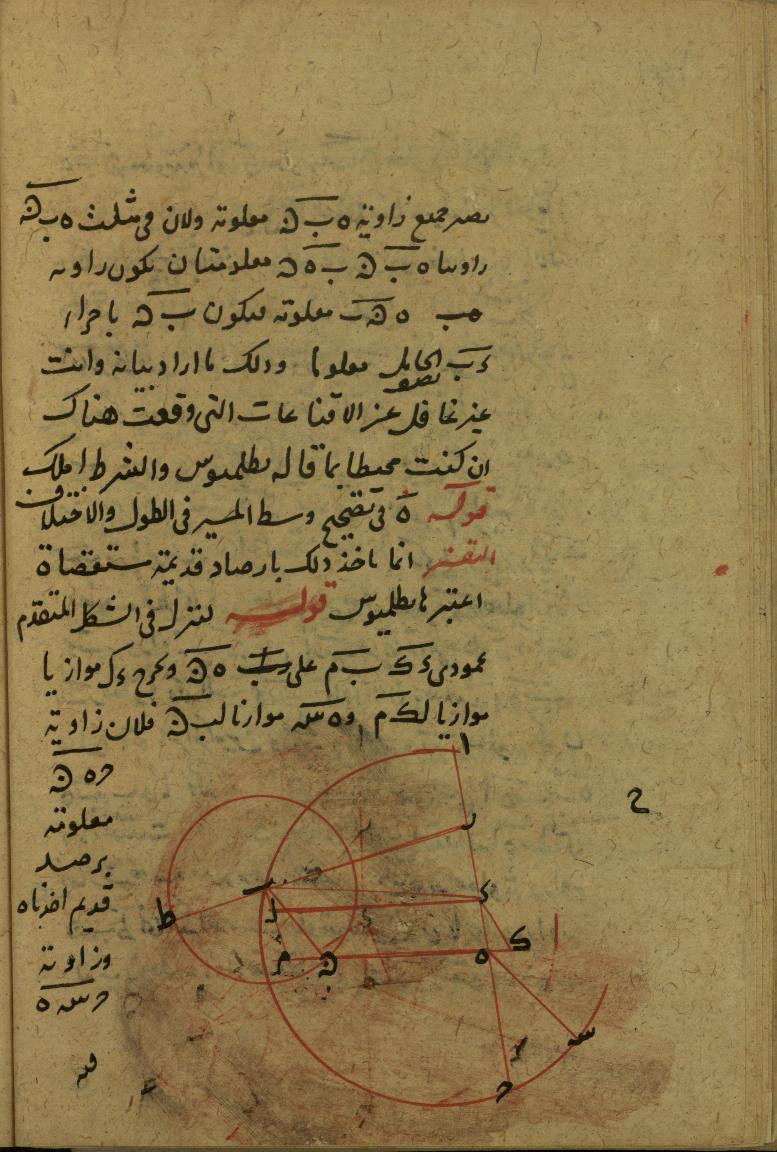 جميع زاوية ه ب ن معلومة ولان فى مثلث ه ب ن
زاويتا ه ب ن ب ه ن معلومتان تكون زاوية
ه ن ب معلومة فيكون ب ن باجزاء
ء ب الحامل معلوما وذلك ما اراد بيانه وانت
غير غافل عن الاقناعات التى وقعت هناك
ان كنت محيطا بما قاله بطلميوس والشرط املك
قوله ة فى تصحيح وسط المسير فى الطول والاختلاف
التفسير انما ناخذ ذلك بارصاد قديمة مستقصاة
اعتبرها بطلميوس قوله لننزل فى الشكل المتقدم
عمودى ء ك ب م على ه ن ونخرج ء ل موازيا
موازيا لك م و ه س موازيا لب ن فلان زاوية
ح ه ن
معلومة
برصد
قديم اخذناه
وزاوية
ح س ه
ا
ر
ح
ب
ل
ء
ط
م
ن
ه
ك
س
ح